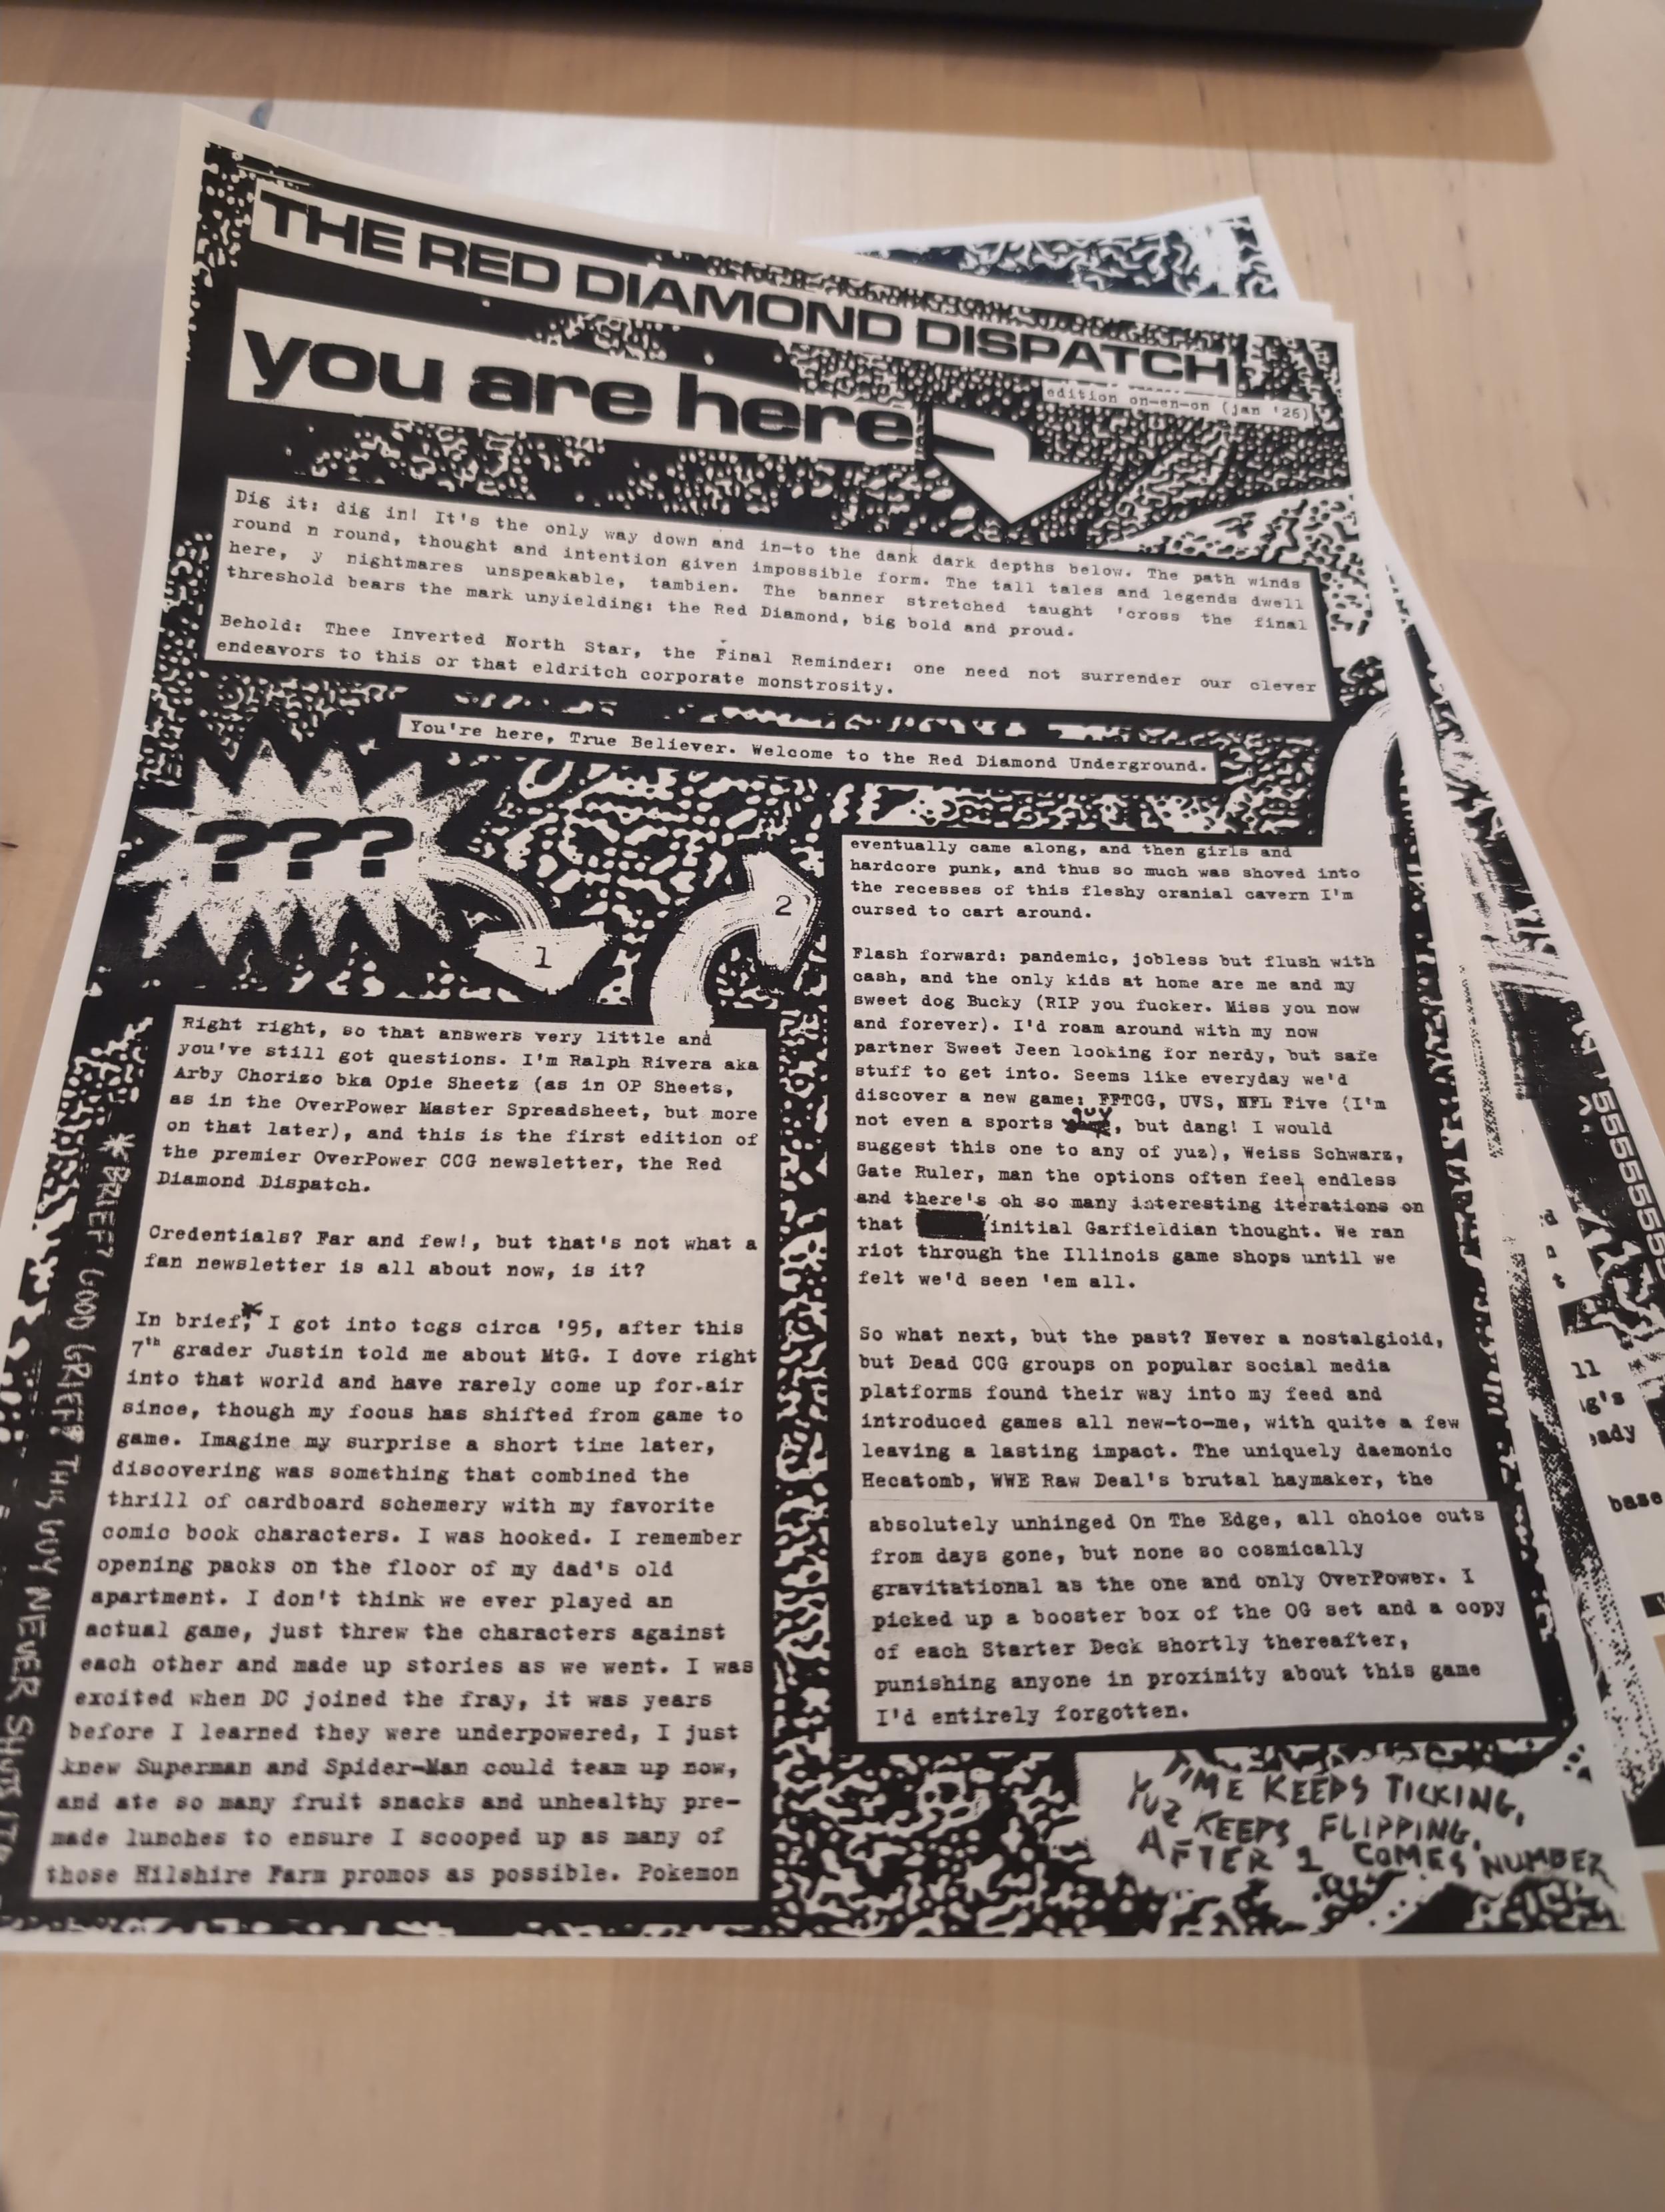 THE RED DIAMOND DISPATCH
you are here
edition on-en-on (jan '26)
Dig it: dig in! It's the only way down and in-to the dank dark depths below. The path winds
round n round, thought and intention given impossible form. The tall tales and legends dwell
here, y nightmares unspeakable, tambien. The banner stretched taught 'cross the final
threshold bears the mark unyielding: the Red Diamond, big bold and proud.
Behold: Thee Inverted North Star, the Final Reminder: one need not surrender our clever
endeavors to this or that eldritch corporate monstrosity.
You're here, True Believer. Welcome to the Red Diamond Underground.
???
1
Right right, so that answers very little and
you've still got questions. I'm Ralph Rivera aka
Arby Chorizo bka Opie Sheetz (as in OP Sheets,
as in the OverPower Master Spreadsheet, but more
on that later), and this is the first edition of
the premier OverPower CCG newsletter, the Red
Diamond Dispatch.
Credentials? Far and few!, but that's not what a
fan newsletter is all about now, is it?
In brief,* I got into tcgs circa '95, after this
7th grader Justin told me about MtG. I dove right
into that world and have rarely come up for-air
since, though my focus has shifted from game to
game. Imagine my surprise a short time later,
discovering was something that combined the
thrill of cardboard schemery with my favorite
comic book characters. I was hooked. I remember
opening packs on the floor of my dad's old
apartment. I don't think we ever played an
actual game, just threw the characters against
each other and made up stories as we went. I was
excited when DC joined the fray, it was years
before I learned they were underpowered, I just
knew Superman and Spider-Man could team up now,
and ate so many fruit snacks and unhealthy pre-
made lunches to ensure I scooped up as many of
those Hilshire Farm promos as possible. Pokemon
* BRIEF? GOOD GRIEF? THIS GUY NEVER SHUTS IT
2
eventually came along, and then girls and
hardcore punk, and thus so much was shoved into
the recesses of this fleshy cranial cavern I'm
cursed to cart around.
Flash forward: pandemic, jobless but flush with
cash, and the only kids at home are me and my
sweet dog Bucky (RIP you fucker. Miss you now
and forever). I'd roam around with my now
partner Sweet Jeen looking for nerdy, but safe
stuff to get into. Seems like everyday we'd
discover a new game: FFTCG, UVS, NFL Five (I'm
not even a sports guy, but dang! I would
suggest this one to any of yuz), Weiss Schwarz,
Gate Ruler, man the options often feel endless
and there's oh so many interesting iterations on
that initial Garfieldian thought. We ran
riot through the Illinois game shops until we
felt we'd seen 'em all.
So what next, but the past? Never a nostalgioid,
but Dead CCG groups on popular social media
platforms found their way into my feed and
introduced games all new-to-me, with quite a few
leaving a lasting impact. The uniquely daemonic
Hecatomb, WWE Raw Deal's brutal haymaker, the
absolutely unhinged On The Edge, all choice cuts
from days gone, but none so cosmically
gravitational as the one and only OverPower. I
picked up a booster box of the OG set and a copy
of each Starter Deck shortly thereafter,
punishing anyone in proximity about this game
I'd entirely forgotten.
TIME KEEPS TICKING,
YUZ KEEPS FLIPPING,
AFTER 1 COMES NUMBER
base